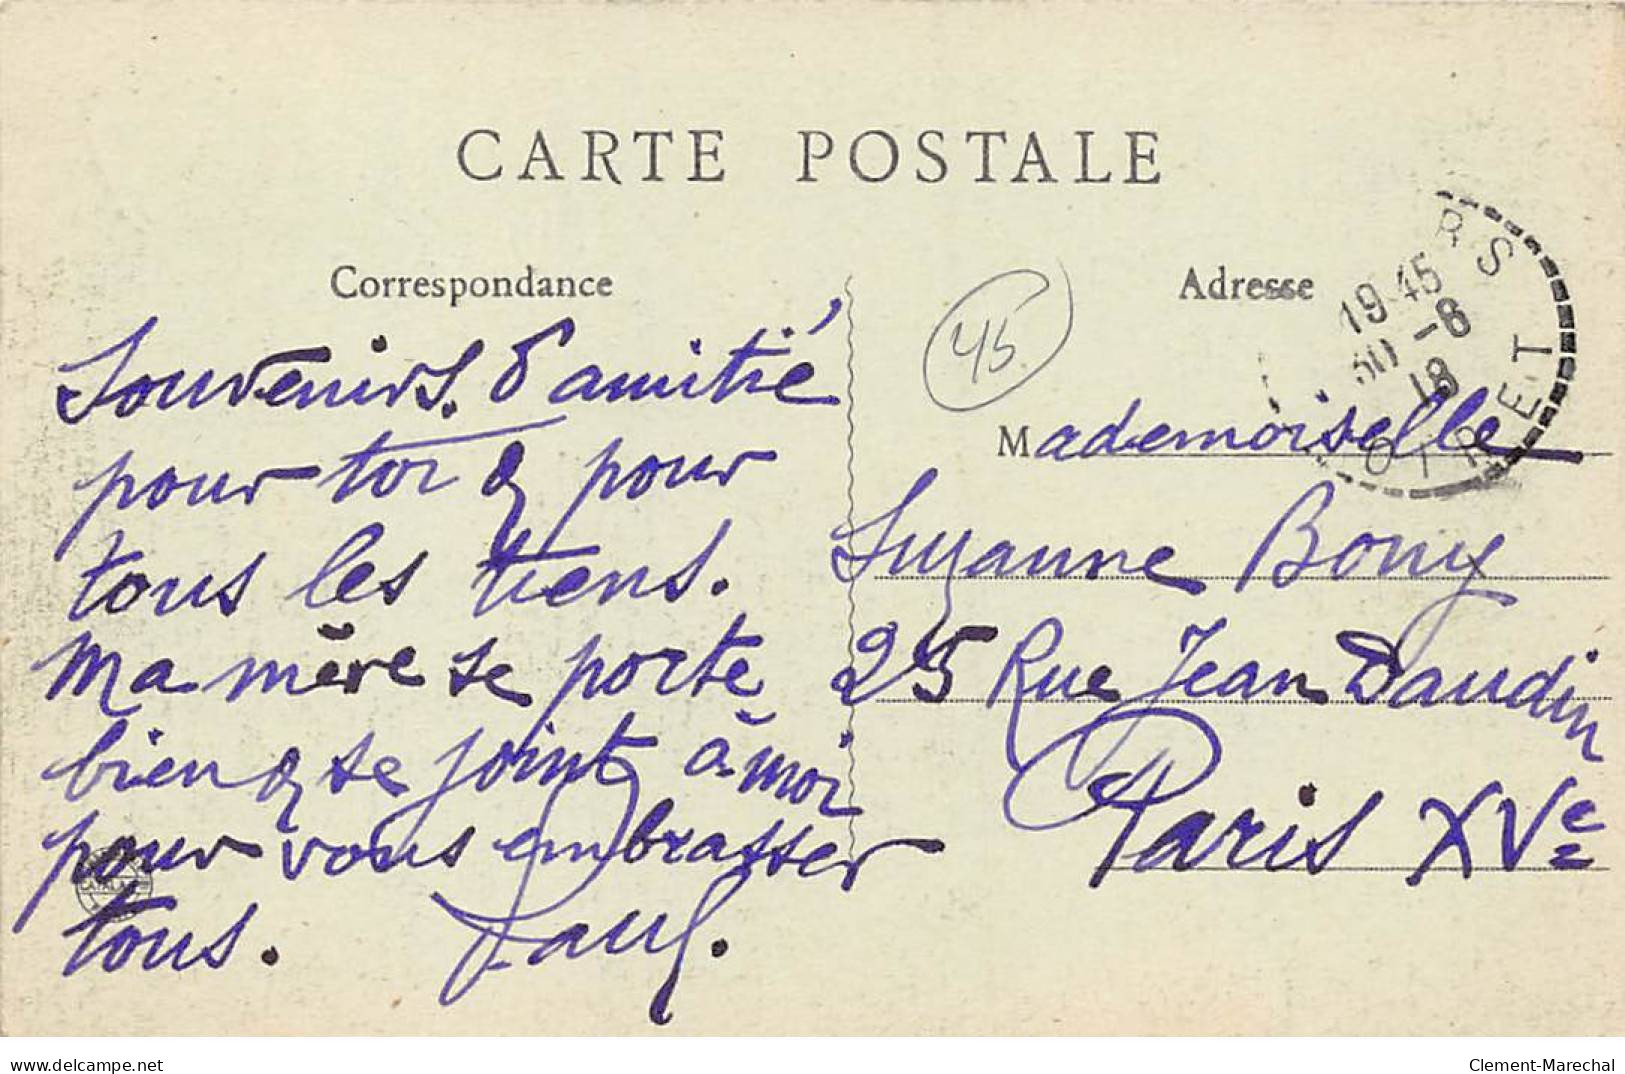 CARTE POSTALE
Correspondance
Souvenirs d'amitié
pour toi & pour
tous les tiens.
Ma mère se porte
bien & se joint à moi
pour vous embrasser
tous. Paul.
45
Adresse
RS
19 45
30 -8
18
LOIRET
Mademoiselle
Suzanne Bony
25 Rue Jean Daudin
Paris XVe
delcampe.net
Clement-Marechal